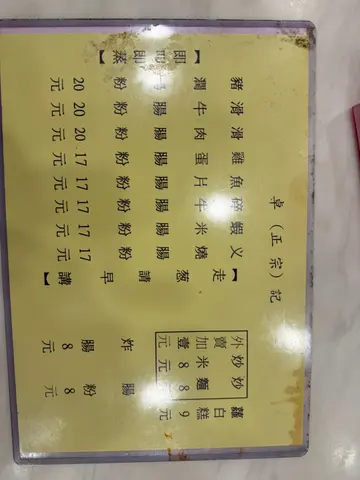 卓(正宗)記
豬潤腸粉20元
滑牛腸粉20元
滑肉腸粉20元
雞蛋腸粉17元
魚片腸粉17元
碎牛腸粉17元
蝦米腸粉17元
叉燒腸粉17元
【即叫即蒸】
【走葱請早講】
外賣加壹元
炒米8元
炒麵8元
蘿白糕9元
炸腸8元
腸粉8元